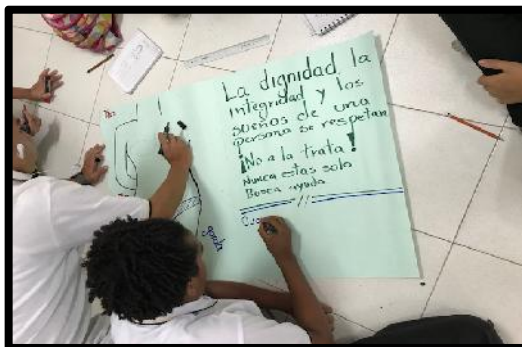 La dignidad, la
integridad y los
sueños de una
persona se respetan
¡No a la trata!
Nunca estas solo
Busca ayuda